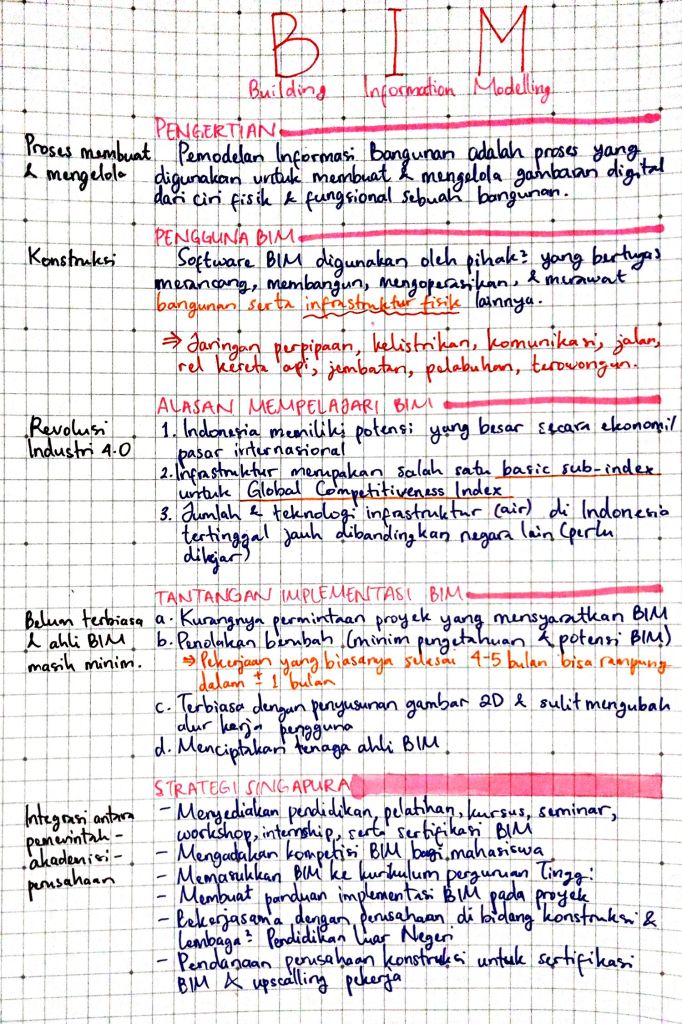 B I M
Building Information Modelling
PENGERTIAN
Proses membuat
& mengelola
Pemodelan Informasi Bangunan adalah proses yang
digunakan untuk membuat & mengelola gambaran digital
dari ciri fisik & fungsional sebuah bangunan.
PENGGUNA BIM
Konstruksi
Software BIM digunakan oleh pihak² yang bertugas
merancang, membangun, mengoperasikan, & merawat
bangunan serta infrastruktur fisik lainnya.
⇒ Jaringan perpipaan, kelistrikan, komunikasi, jalan,
rel kereta api, jembatan, pelabuhan, terowongan.
ALASAN MEMPELAJARI BIM
Revolusi
Industri 4.0
1. Indonesia memiliki potensi yang besar secara ekonomi/
pasar internasional
2. Infrastruktur merupakan salah satu basic sub-index
untuk Global Competitiveness Index
3. Jumlah & teknologi infrastruktur (air) di Indonesia
tertinggal jauh dibandingkan negara lain (perlu
dikejar)
TANTANGAN IMPLEMENTASI BIM
Belum terbiasa
& ahli BIM
masih minim.
a. Kurangnya permintaan proyek yang mensyaratkan BIM
b. Penolakan berubah (minim pengetahuan & potensi BIM)
⇒ Pekerjaan yang biasanya selesai 4-5 bulan bisa rampung
dalam ± 1 bulan
c. Terbiasa dengan penyusunan gambar 2D & sulit mengubah
alur kerja pengguna
d. Menciptakan tenaga ahli BIM
STRATEGI SINGAPURA
Integrasi antara
pemerintah -
akademisi -
perusahaan
- Menyediakan pendidikan, pelatihan, kursus, seminar,
workshop, internship, serta sertifikasi BIM
- Mengadakan kompetisi BIM bagi mahasiswa
- Memasukkan BIM ke kurikulum perguruan Tinggi
- Membuat panduan implementasi BIM pada proyek
- Bekerjasama dengan perusahaan di bidang konstruksi &
Lembaga² Pendidikan Luar Negeri
- Pendanaan perusahaan konstruksi untuk sertifikasi
BIM & upscalling pekerja